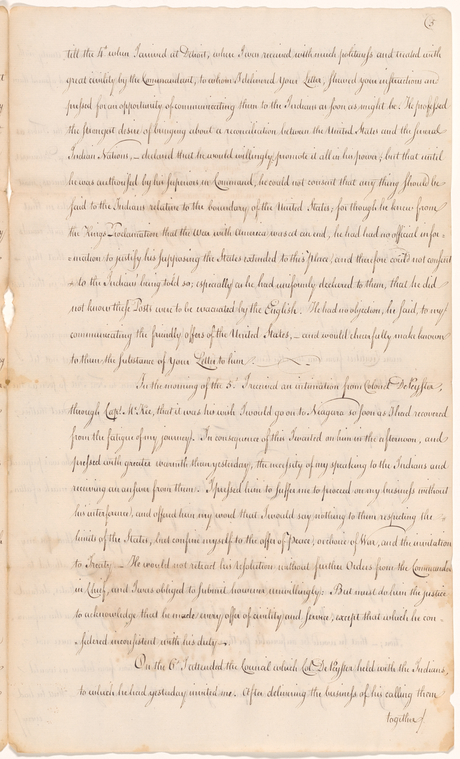 (5
till the 4th when I arrived at Detroit, where I was received with much politeness and treated with
great civility by the Commandant, to whom I delivered Your Letter, shewed your instructions and
pressed for an opportunity of communicating them to the Indians as soon as might be. He professed
the strongest desire of bringing about a reconciliation between the United States and the several
Indian Nations,— declared that he would willingly promote it all in his power; but that until
he was authorised by his superiors in Command, he could not consent that any thing should be
said to the Indians relative to the boundary of the United States; for though he knew from
the Kings Proclamation that the War with America was at an end, he had had no official infor-
-mation to justify his supposing the States extended to this place, and therefore could not consent
to the Indians being told so; especially as he had uniformly declared to them, that he did
not know these Posts were to be evacuated by the English. He had no objection, he said, to my
communicating the friendly offers of the United States,— and would chearfully make known
to them the substance of Your Letter to him.
In the morning of the 5. I received an intimation from Colonel DePeyster,
through Capt. McKee, that it was his wish I would go on to Niagara so soon as I had recovered
from the fatigue of my journey. In consequence of this I waited on him in the afternoon, and
pressed with greater warmth than yesterday, the necessity of my speaking to the Indians and
receiving an answer from them. I pressed him to suffer me to proceed on my business without
his interference, and offered him my word that I would say nothing to them respecting the
limits of the States, but confine myself to the offer of Peace, or choice of War, and the invitation
to Treaty.— He would not retract his resolution without further Orders from the Commander
in Chief, and I was obliged to submit however unwillingly: But must do him the justice
to acknowledge that he made every offer of civility and service, except that which he con-
sidered inconsistent with his duty.
On the 6th I attended the Council which Col. DePeyster held with the Indians,
to which he had yesterday invited me. After delivering the business of his calling them
together